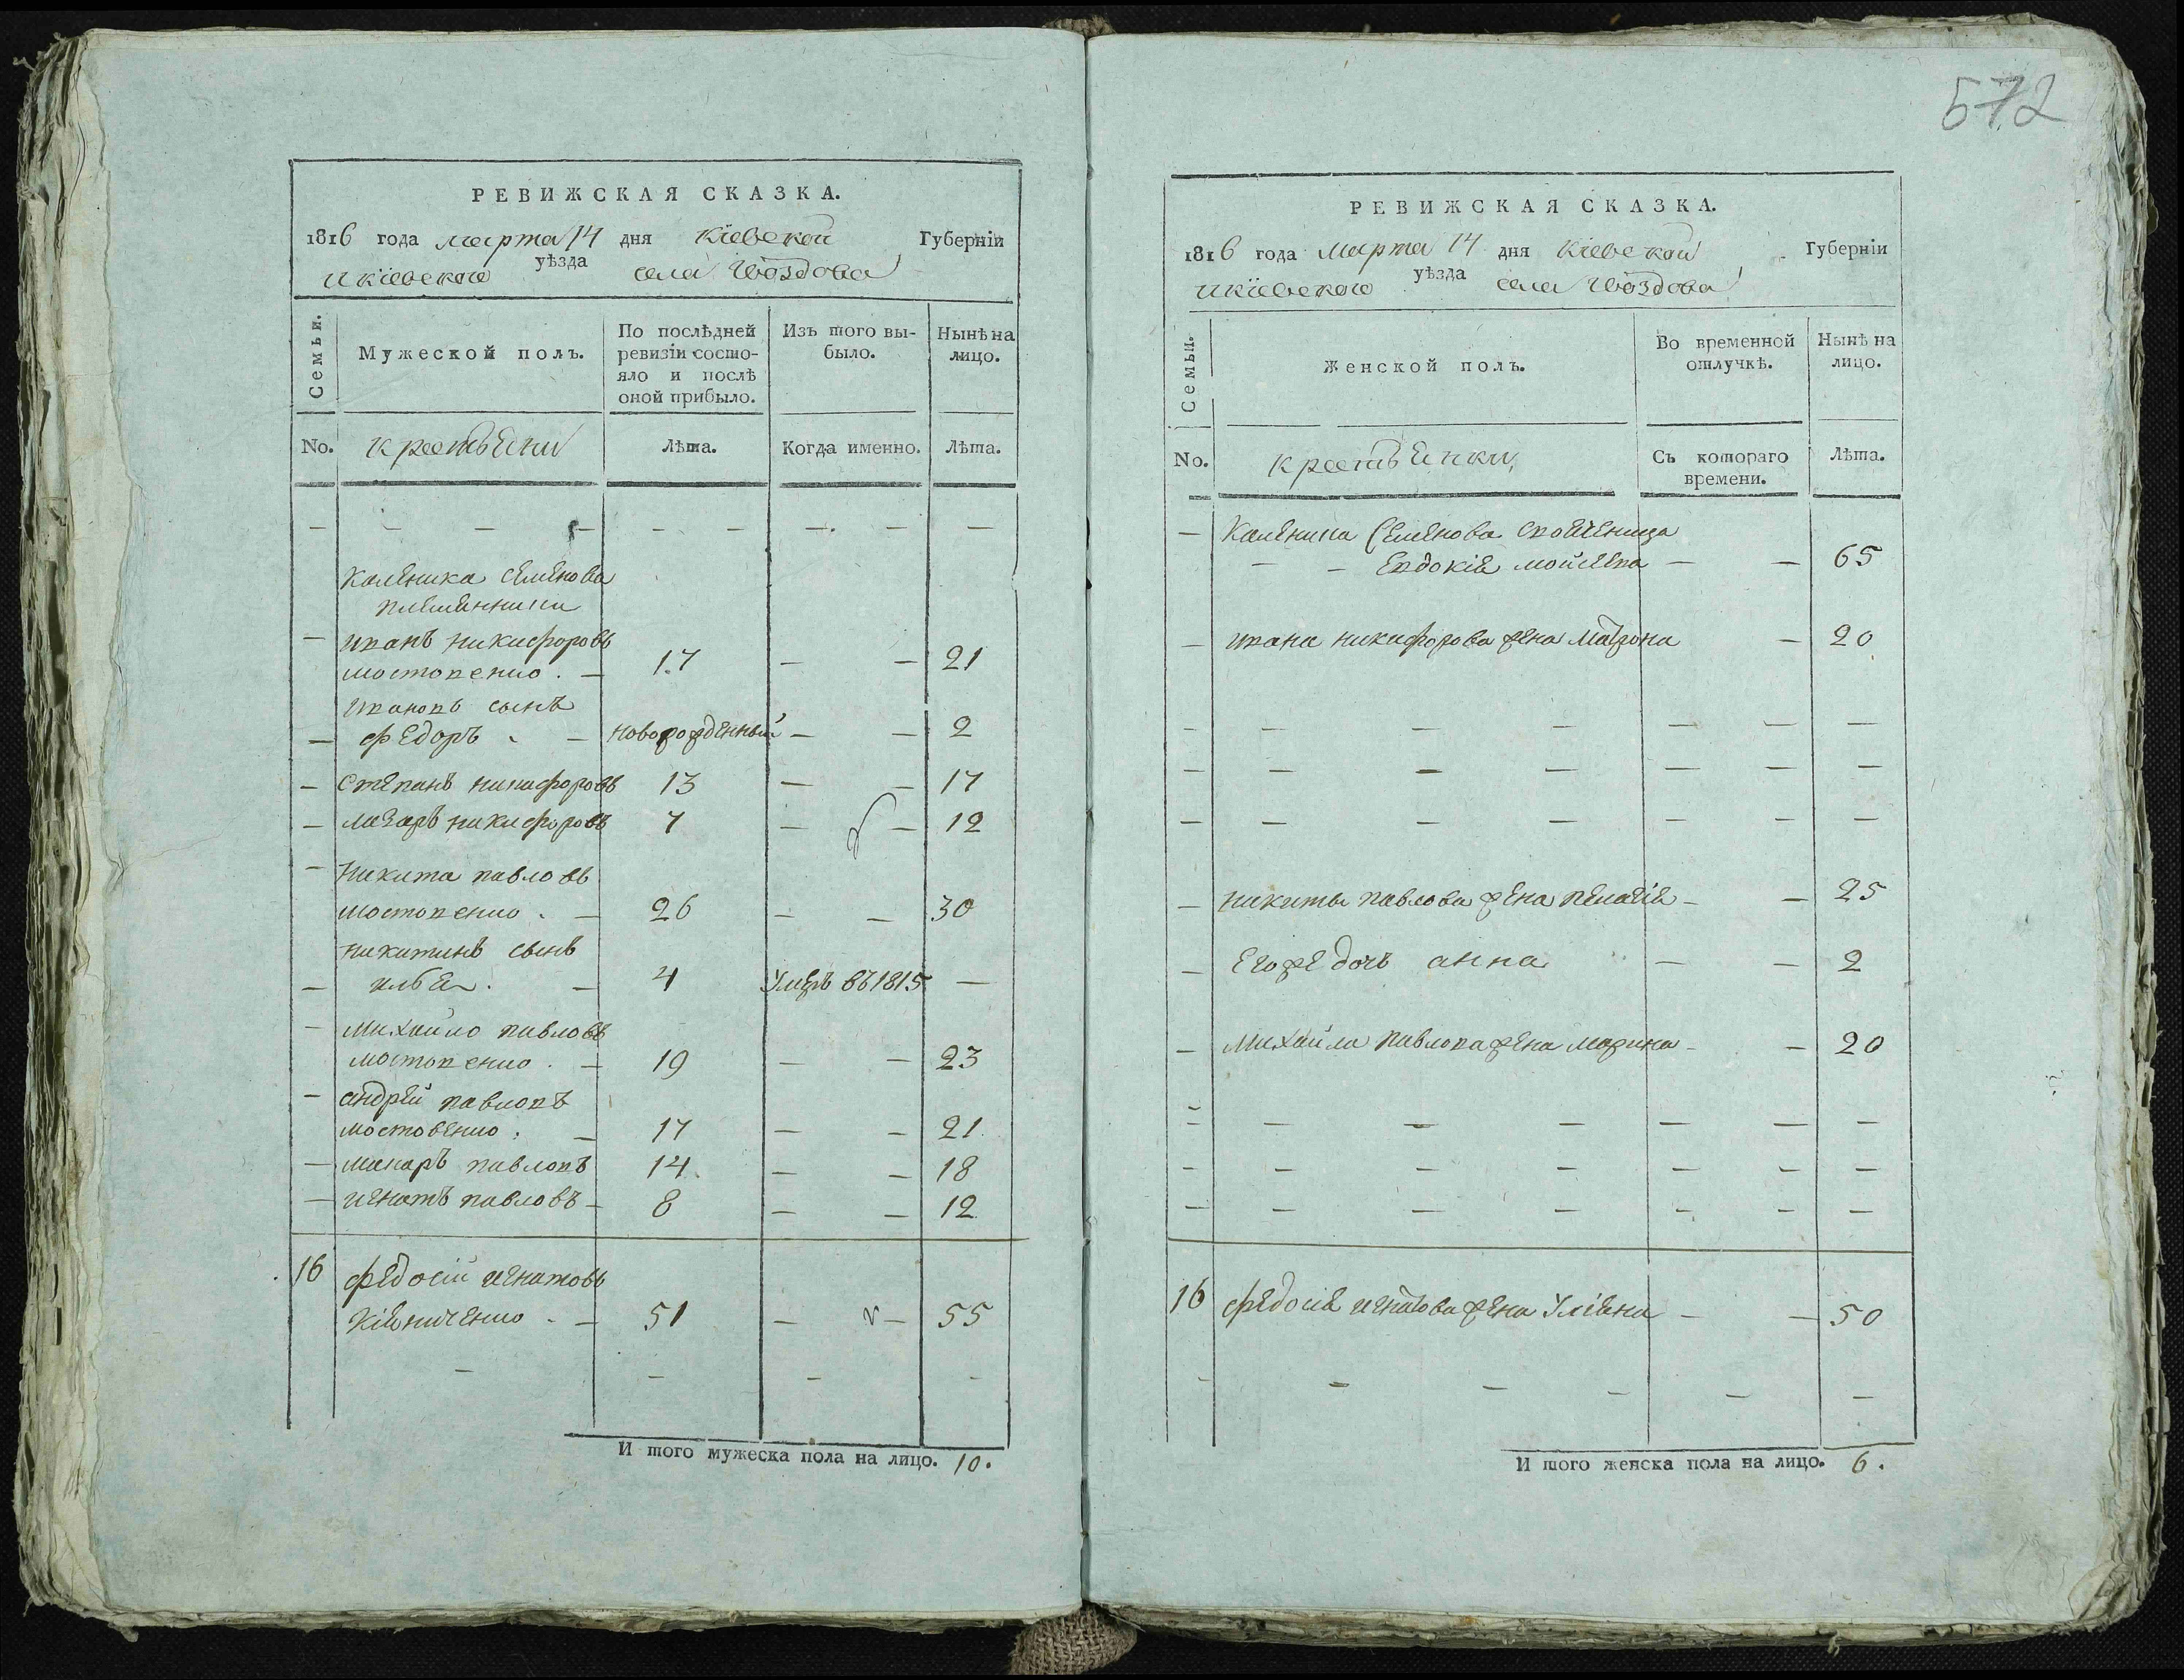 572
РЕВИЖСКАЯ СКАЗКА.
1816 года марта 14 дня Кіевской Губерніи
и кіевского уѣзда села Гвоздова
Семьи.
Мужеской полъ.
По послѣдней ревизіи состояло и послѣ оной прибыло.
Изъ того выбыло.
Нынѣ на лицо.
No. крестьяни Лѣта. Когда именно. Лѣта.
— — — — — — — — —
Каленика Семенова
племянники
— иванъ никифоровъ
мостовенко . — 17 — — 21
ивановъ сынъ
— федоръ . — новорожденный — — 2
— степанъ никифоровъ 13 — — 17
— лазаръ никифоровъ 7 — — 12
— никита павловъ
мостовенко . — 26 — — 30
никитинъ сынъ
— илья . — 4 умеръ въ 1815 —
— михайло павловъ
мостовенко . — 19 — — 23
— андрей павловъ
мостовенко . — 17 — — 21
— макаръ павловъ 14 — — 18
— игнатъ павловъ — 8 — — 12
16 федосій игнатовъ
кіяниченко . — 51 — — 55
— — — —
И того мужеска пола на лицо. 10.
РЕВИЖСКАЯ СКАЗКА.
1816 года марта 14 дня Кіевской Губерніи
и кіевского уѣзда села Гвоздова
Семьи.
Женской полъ.
Во временной отлучкѣ.
Нынѣ на лицо.
No. крестьянки Съ котораго времени. Лѣта.
— Каленика Семенова
— евдокія мойсеева — — 65
— ивана никифорова жена матрона — 20
— — — — — — —
— — — — — — —
— — — — — — —
— никиты павлова жена пелагія — — 25
— его же дочь анна — — 2
— михайла павлова жена марина — — 20
— — — — — — —
— — — — — — —
— — — — — — —
16 федосія игнатова жена уліяна — — 50
— — — — — —
И того женска пола на лицо. 6.